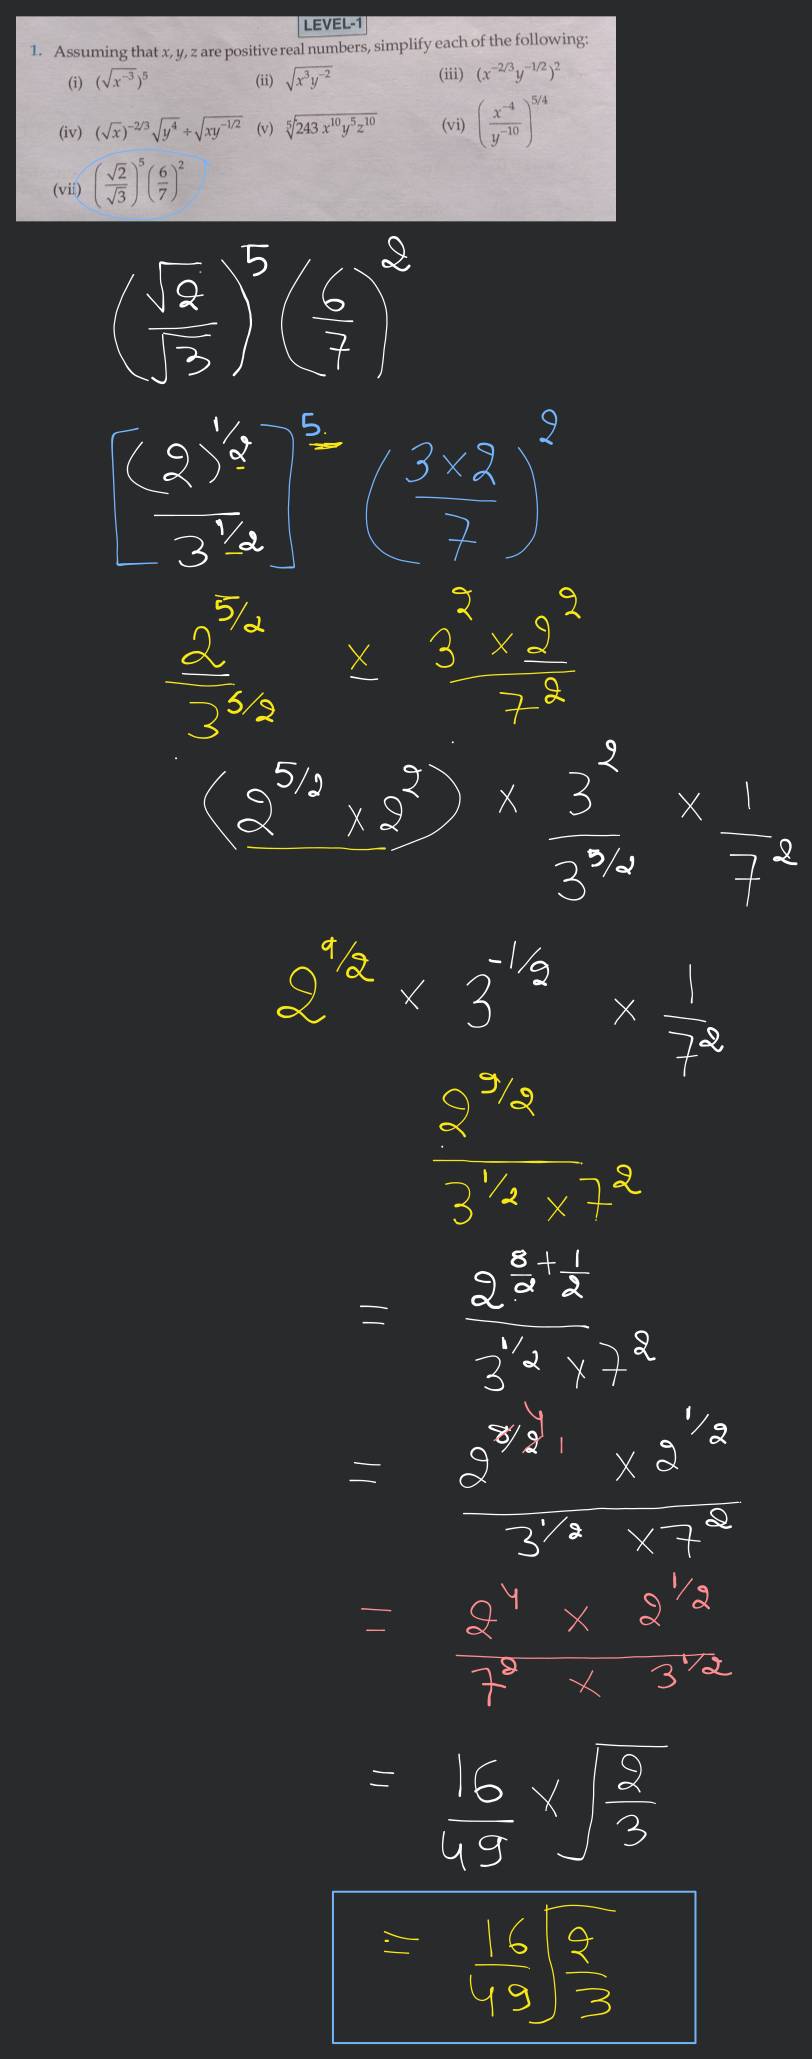 LEVEL-1
1. Assuming that x, y, z are positive real numbers, simplify each of the following:
(i) (√x⁻³)⁵ (ii) √x³y⁻² (iii) (x⁻²/³y⁻¹/²)²
(iv) (√x)⁻²/³ √y⁴ ÷ √xy⁻¹/² (v) ⁵√243 x¹⁰y⁵z¹⁰ (vi) (x⁻⁴/y⁻¹⁰)⁵/⁴
(vii) (√2/√3)⁵ (6/7)²
(√2/√3)⁵ (6/7)²
[(2)^1/2 / 3^1/2]^5. (3×2/7)²
2^5/2 / 3^5/2 × 3² × 2² / 7²
(2^5/2 × 2²) × 3²/3^5/2 × 1/7²
2^9/2 × 3^-1/2 × 1/7²
2^9/2 / 3^1/2 × 7²
= 2^(8/2 + 1/2) / 3^1/2 × 7²
= 2^8/2 4 1 × 2^1/2 / 3^1/2 × 7²
= 2⁴ × 2^1/2 / 7² × 3^1/2
= 16/49 × √2/3
= 16/49 √2/3